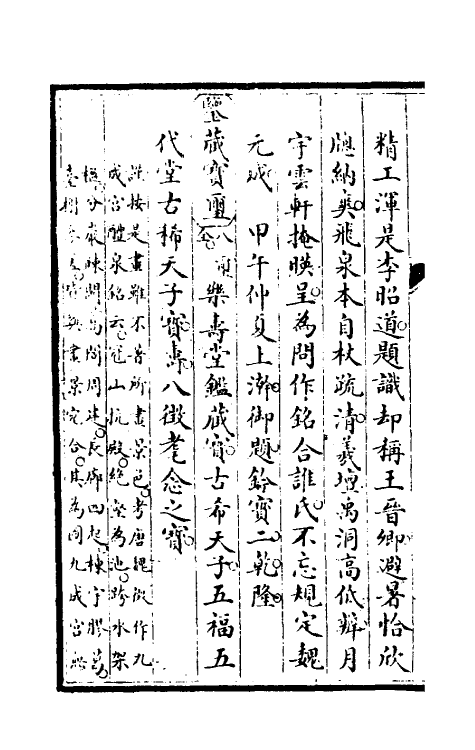 精工渾是李昭道題識却稱王晉卿避暑恰欣
牕納爽飛泉本自杖疏清羲壇禹洞高低辨月
宇雲軒掩暎呈為問作銘合誰氏不忘規定魏
元成　甲午仲夏上澣御題鈐寶二乾隆
鑒藏寶璽八全樂壽堂鑑藏寶古希天子五福五
代堂古稀天子寶壽八徵耄念之寶
謹按是畫雖不署所畫景色考唐魏徵作九
成宮醴泉銘云冠山抗殿絶壑為池跨水架
楹分巖竦闕高閣周建長廊四起棟宇膠葛
臺榭參差與畫景宛合其為圖九成宮